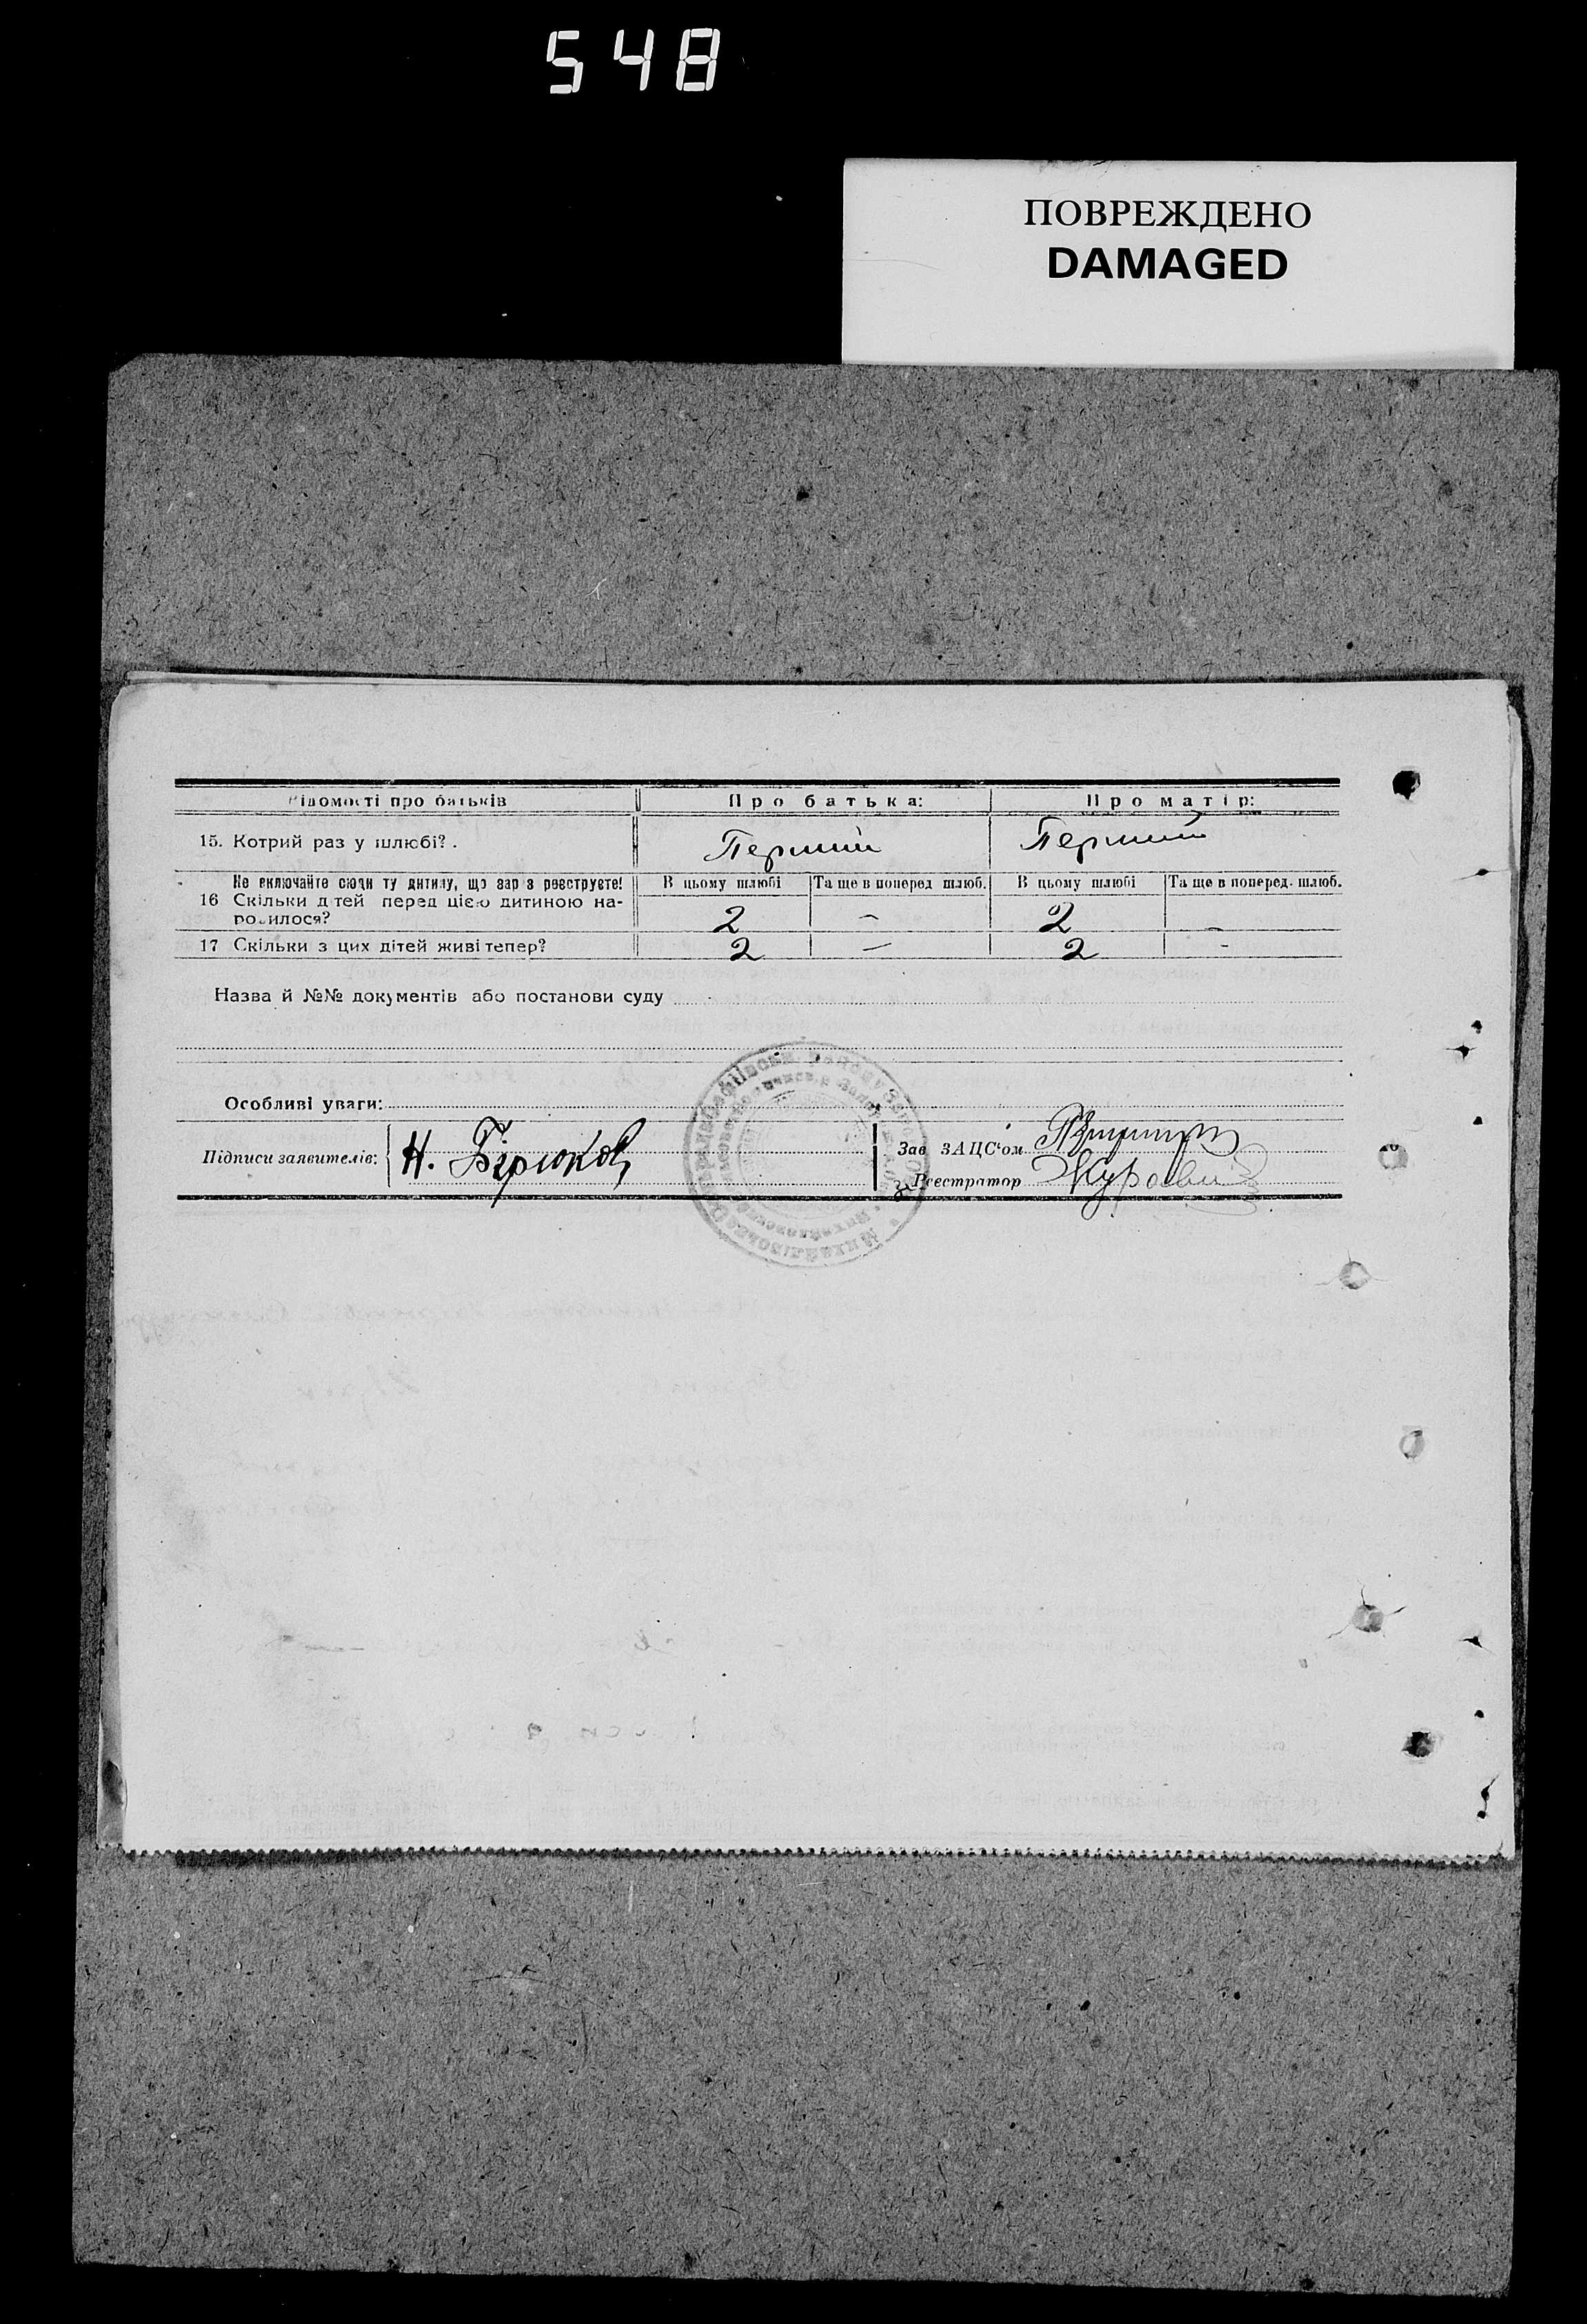 548
ПОВРЕЖДЕНО
DAMAGED
Відомості про батьків Про батька: Про матір:
15. Котрий раз у шлюбі? . Перший Перший
Не включайте сюди ту дитину, що зараз реєструєте! В цьому шлюбі Та ще в поперед шлюб. В цьому шлюбі Та ще в поперед. шлюб.
16 Скільки дітей перед цією дитиною на-
родилося? 2 – 2 –
17 Скільки з цих дітей живі тепер? 2 – 2 –
Назва й №№ документів або постанови суду
Особливі уваги:
Підписи заявителів: Н. Бірюков Зав ЗАЦС'ом
Реєстратор